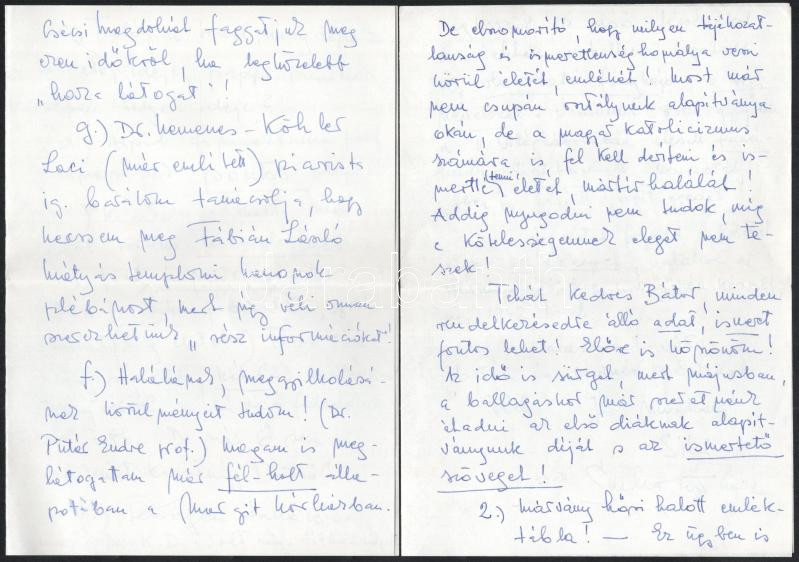 Csécsi Magdolnát faggatjuk meg
ezen időkről, ha legközelebb
„haza látogat"!
g.) Dr. Nemenes-Köhler
Laci (már említett) piarista
ig. barátom tanácsolja, hogy
keressem meg Fábián László
mátyástemplomi kanonok
plébánost, mert úgy véli onnan
szerezhetünk „rész információkat!
f.) Halálának, meggyilkolásá-
nak körülményeit tudom! (Dr.
Pintér Endre prof.) magam is meg-
látogattam már fél-holt álla-
potában a Margit kórházban.
De elszomorító, hogy milyen tájékozat-
lanság és ismeretlenség homálya veszi
körül életét, emlékét! Most már
nem csupán osztályunk alapítványa
okán, de a magyar katolicizmus
számára is fel kell deríteni és is-
mertté (tenni) életét, mártírhalálát!
Addig nyugodni nem tudok, míg
e kötelességemnek eleget nem te-
szek!
Tehát kedves Bátor, minden
rendelkezésedre álló adat, ismeret
fontos lehet! Előre is köszönöm!
Az idő is sürget, mert májusban,
a ballagáskor már szeretnénk
átadni az első diáknak alapít-
ványunk díját s az ismertető
szöveget!
2.) Márvány hősi halott emlék-
tábla! — Ez ügyben is